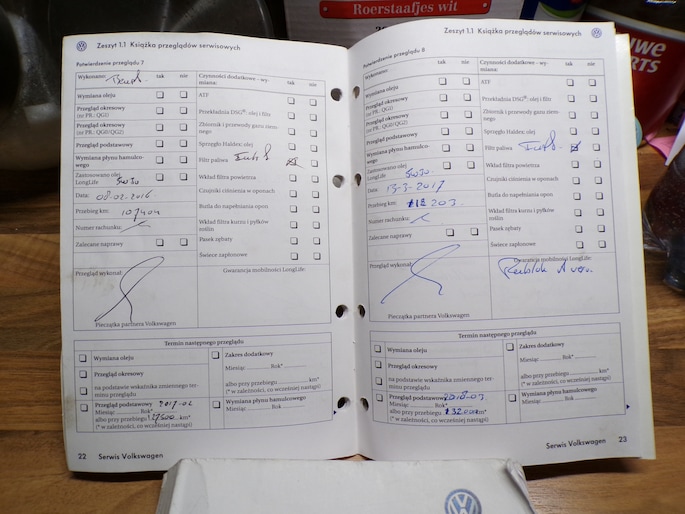 Roerstaafjes wit
uwe
RTS
Zeszyt 1.1 Książka przeglądów serwisowych
Potwierdzenie przeglądu 7
Wykonano:
tak nie
Czynności dodatkowe - wy-
miana:
tak nie
Wymiana oleju
ATF
Przegląd okresowy
(nr PR.: QG1)
Przekładnia DSG®: olej i filtr
Przegląd okresowy
(nr PR.: QG0/QG2)
Zbiornik i przewody gazu ziem-
nego
Przegląd podstawowy
Sprzęgło Haldex: olej
Wymiana płynu hamulco-
wego
Filtr paliwa
Zastosowano olej
LongLife 5W30
Wkład filtra powietrza
Data: 08.02.2016
Czujniki ciśnienia w oponach
Przebieg km: 107404
Butla do napełniania opon
Numer rachunku:
Wkład filtra kurzu i pyłków
roślin
Zalecane naprawy
Pasek zębaty
Świece zapłonowe
Przegląd wykonał:
Gwarancja mobilności LongLife:
Pieczątka partnera Volkswagen
Termin następnego przeglądu
Wymiana oleju
Przegląd okresowy
na podstawie wskaźnika zmiennego ter-
minu przeglądu
Przegląd podstawowy 2017-02
Miesiąc Rok*
albo przy przebiegu 127500 km*
(* w zależności, co wcześniej nastąpi)
Zakres dodatkowy
Miesiąc Rok*
albo przy przebiegu km*
(* w zależności, co wcześniej nastąpi)
Wymiana płynu hamulcowego
Miesiąc Rok
22 Serwis Volkswagen
Zeszyt 1.1 Książka przeglądów serwisowych
Potwierdzenie przeglądu 8
Wykonano:
tak nie
Czynności dodatkowe - wy-
miana:
tak nie
Wymiana oleju
ATF
Przegląd okresowy
(nr PR.: QG1)
Przekładnia DSG®: olej i filtr
Przegląd okresowy
(nr PR.: QG0/QG2)
Zbiornik i przewody gazu ziem-
nego
Przegląd podstawowy
Sprzęgło Haldex: olej
Wymiana płynu hamulco-
wego
Filtr paliwa
Zastosowano olej
LongLife 5W30
Wkład filtra powietrza
Data: 13-3-2017
Czujniki ciśnienia w oponach
Przebieg km: 112 203
Butla do napełniania opon
Numer rachunku:
Wkład filtra kurzu i pyłków
roślin
Zalecane naprawy
Pasek zębaty
Świece zapłonowe
Przegląd wykonał:
Gwarancja mobilności LongLife:
Pieczątka partnera Volkswagen
Termin następnego przeglądu
Wymiana oleju
Przegląd okresowy
na podstawie wskaźnika zmiennego ter-
minu przeglądu
Przegląd podstawowy 2018-03
Miesiąc Rok*
albo przy przebiegu 132000 km*
(* w zależności, co wcześniej nastąpi)
Zakres dodatkowy
Miesiąc Rok*
albo przy przebiegu km*
(* w zależności, co wcześniej nastąpi)
Wymiana płynu hamulcowego
Miesiąc Rok
Serwis Volkswagen 23